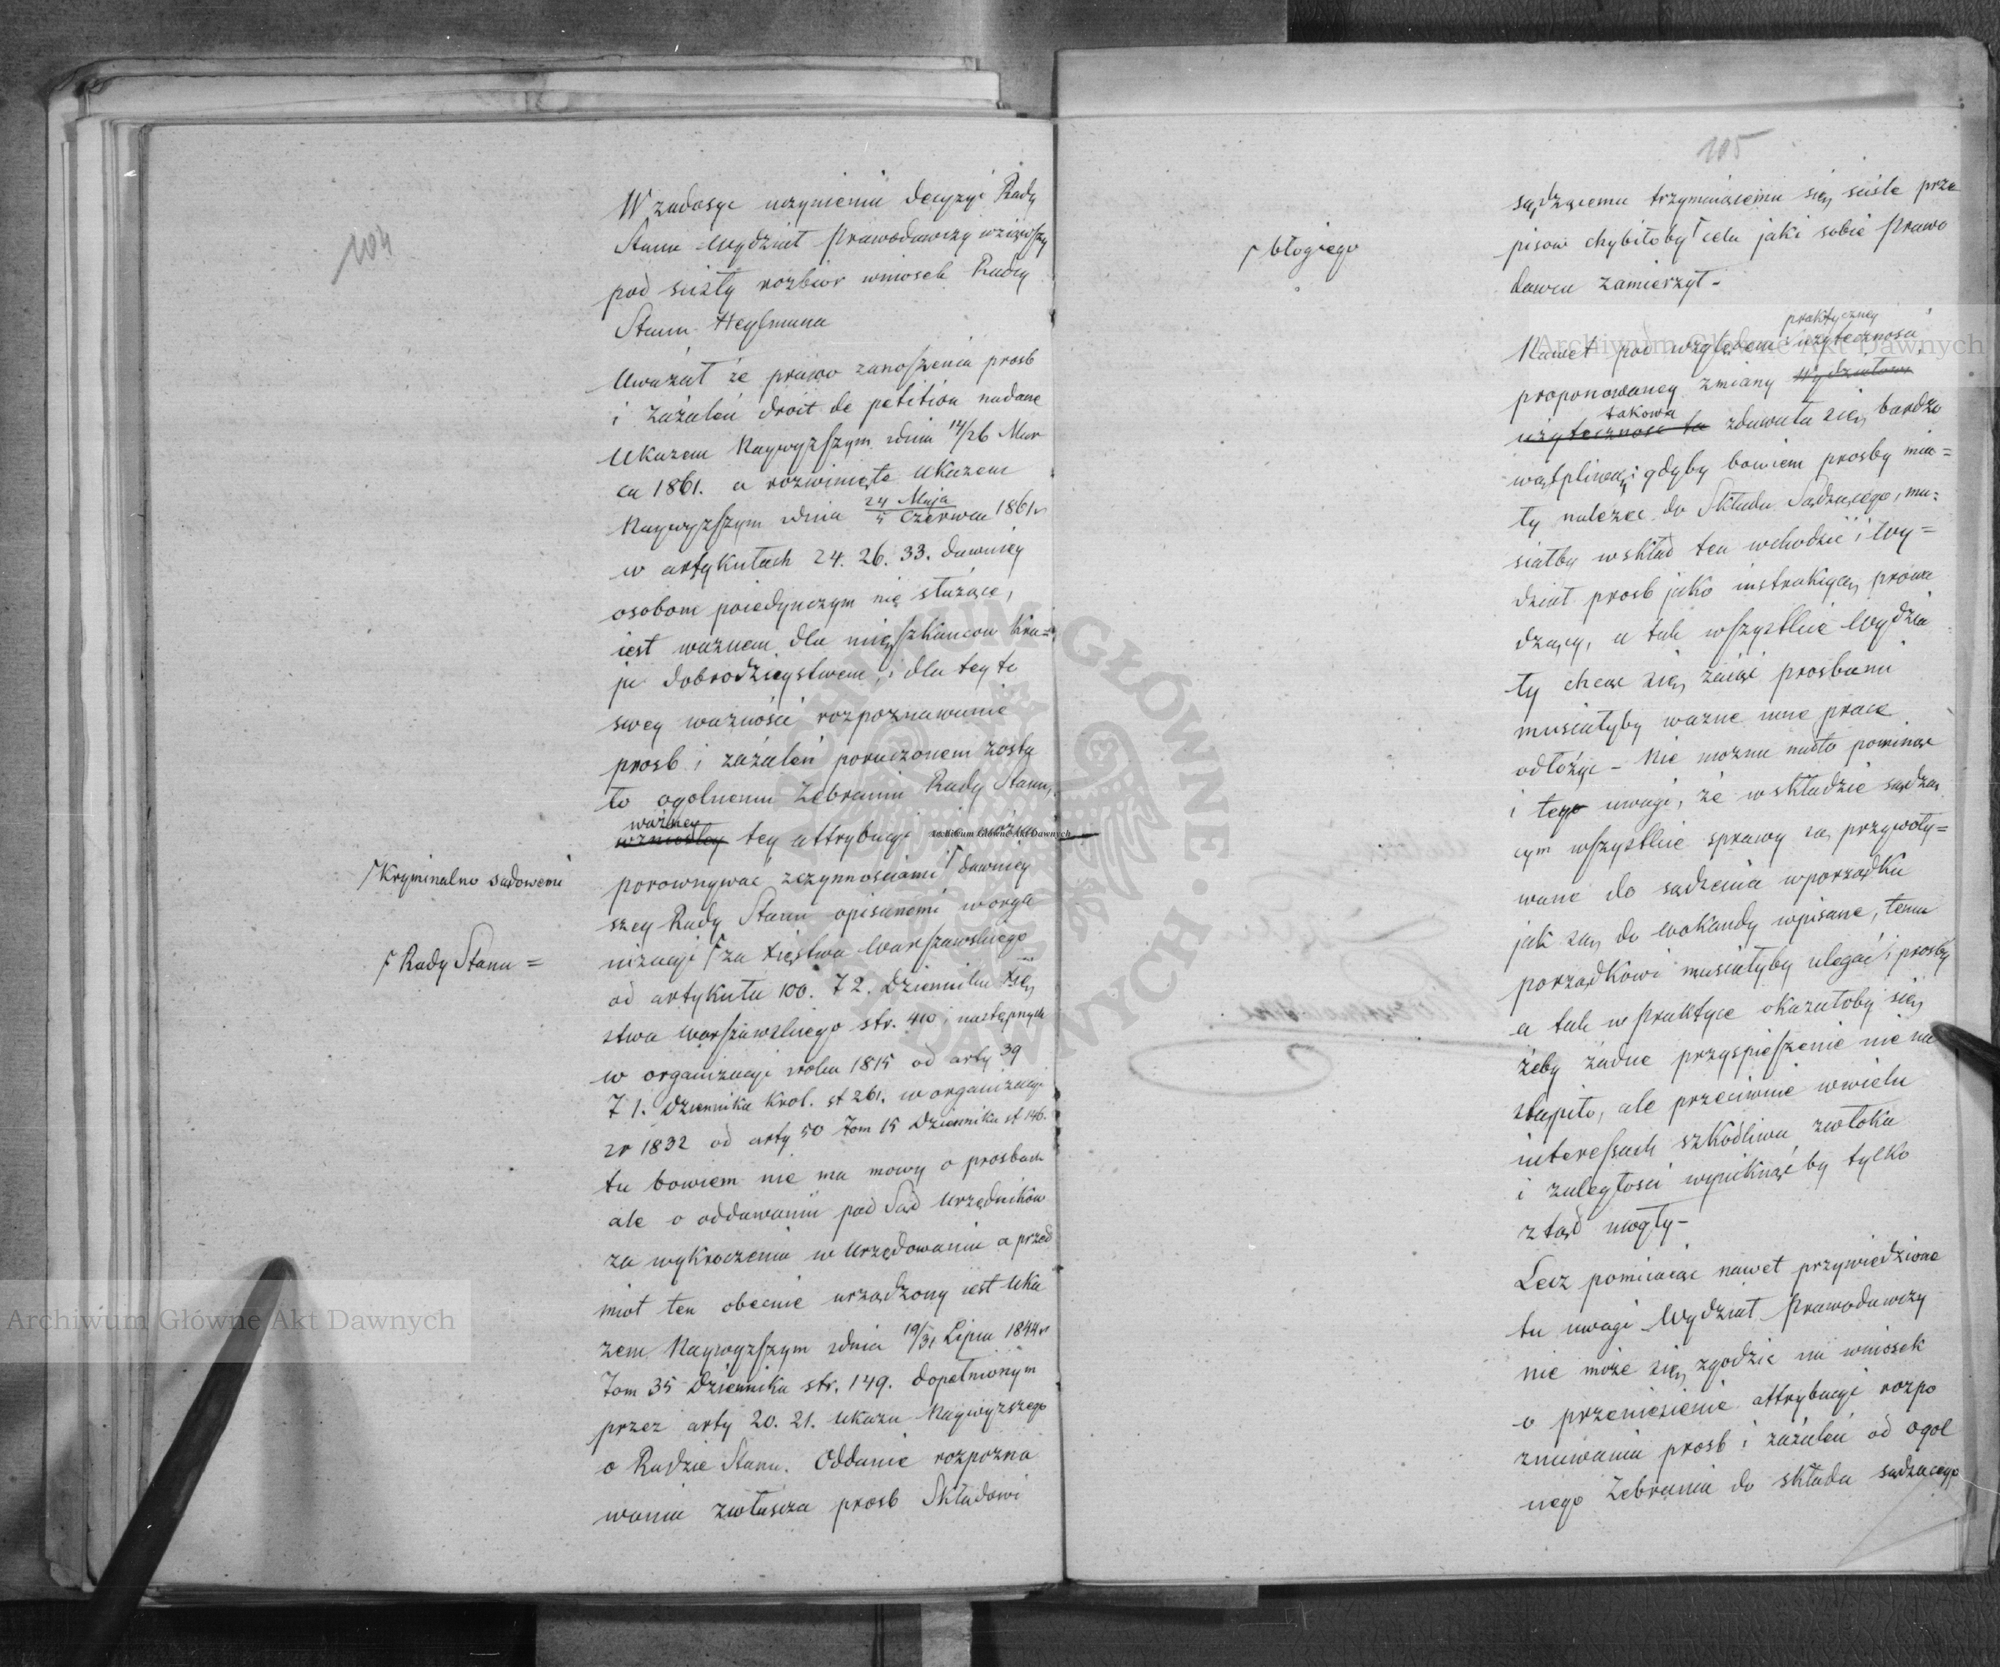 104
W zadosyć uczynieniu decyzyi Rady
Stanu Wydział Prawodawczy wziąwszy
pod ścisły rozbiór wniosek Radcy
Stanu Heylmana
Uważał że prawo zanoszenia prosb
i zażaleń droit de petition nadane
Ukazem Naywyższym zdnia 14/26 Mar
ca 1861. a rozwinięte Ukazem
Naywyższym zdnia 24 Maja/5 Czerwca 1861 r
w artykułach 24. 26. 33. dawniey
osobom poiedynczym nie służące,
iest ważnem dla mieszkańcow Kra=
ju dobrodzieystwem, i dla tey to
swey ważności rozpoznawanie
prosb i zażaleń poruczonem zosta
ło ogolnemu Zebraniu Rady Stanu,
ważney
wzniosłey tey attrybucyi nie można
porownywać zczynnościami ⌈ dawniey
⌈ Kryminalno sądowemi
szey Rady Stanu opisanemi w orga
nizacyi ⌈ za Xięstwa Warszawskiego
⌈ Rady Stanu =
od artykułu 100. T 2. Dziennika Xię
stwa Warszawskiego str. 410 i następnych
w organizacyi zroku 1815 od arty 39
T 1. Dziennika Krol. st 261. w organizacyi
zr 1832 od arty 50 Tom 15 Dziennika st 146.
tu bowiem nie ma mowy o prosbach
ale o oddawaniu pod Sąd Urzędników
za wykroczenia w Urzędowaniu a przed
miot ten obecnie urządzony iest Uka
zem Naywyższym zdnia 19/31 Lipca 1844 r
Tom 35 Dziennika str. 149. dopełnionym
przez arty 20. 21. Ukazu Naywyższego
o Radzie Stanu. Oddanie rozpozna
wania zwłaszcza prosb Składowi
105
sądzącemu trzymaiącemu się ściśle prze
pisow chybiłoby ⌈ celu jaki sobie Prawo
⌈ błogiego
dawca zamierzył -
praktyczney
Nawet pod względem użyteczności
proponowaney zmiany Wydziałowi
takowa
użyteczność ta zdawała się bardzo
wątpliwą; gdyby bowiem prosby mia=
ły należeć do Składu Sądzącego, mu=
siałby w skład ten wchodzić i Wy=
dział prosb jako instrukcyą prowa
dzący, a tak wszystkie Wydzia
ły chcąc się zająć prosbami
musiałyby ważne inne prace
odłożyć - Nie można nadto pominąć
i tego uwagi, że w składzie sądzą
cym wszystkie sprawy są przywoły=
wane do sądzenia w porządku
jak są do Wokandy wpisane, temu
porządkowi musiałyby ulegać i prosby
a tak w praktyce okazałoby się
żeby żadne przyspieszenie nie na
stąpiło, ale przeciwnie w wielu
interessach szkodliwa zwłoka
i zaległości wyniknąć by tylko
ztąd mogły -
Lecz pomiiaiąc nawet przywiedzione
tu uwagi Wydział Prawodawczy
nie może się zgodzić na wniosek
o przeniesienie attrybucyi rozpo
znawania prosb i zażaleń od ogol
nego Zebrania do składu sądzącego
Archiwum Główne Akt Dawnych
Archiwum Główne Akt Dawnych
Archiwum Główne Akt Dawnych
ARCHIWUM GŁÓWNE AKT DAWNYCH